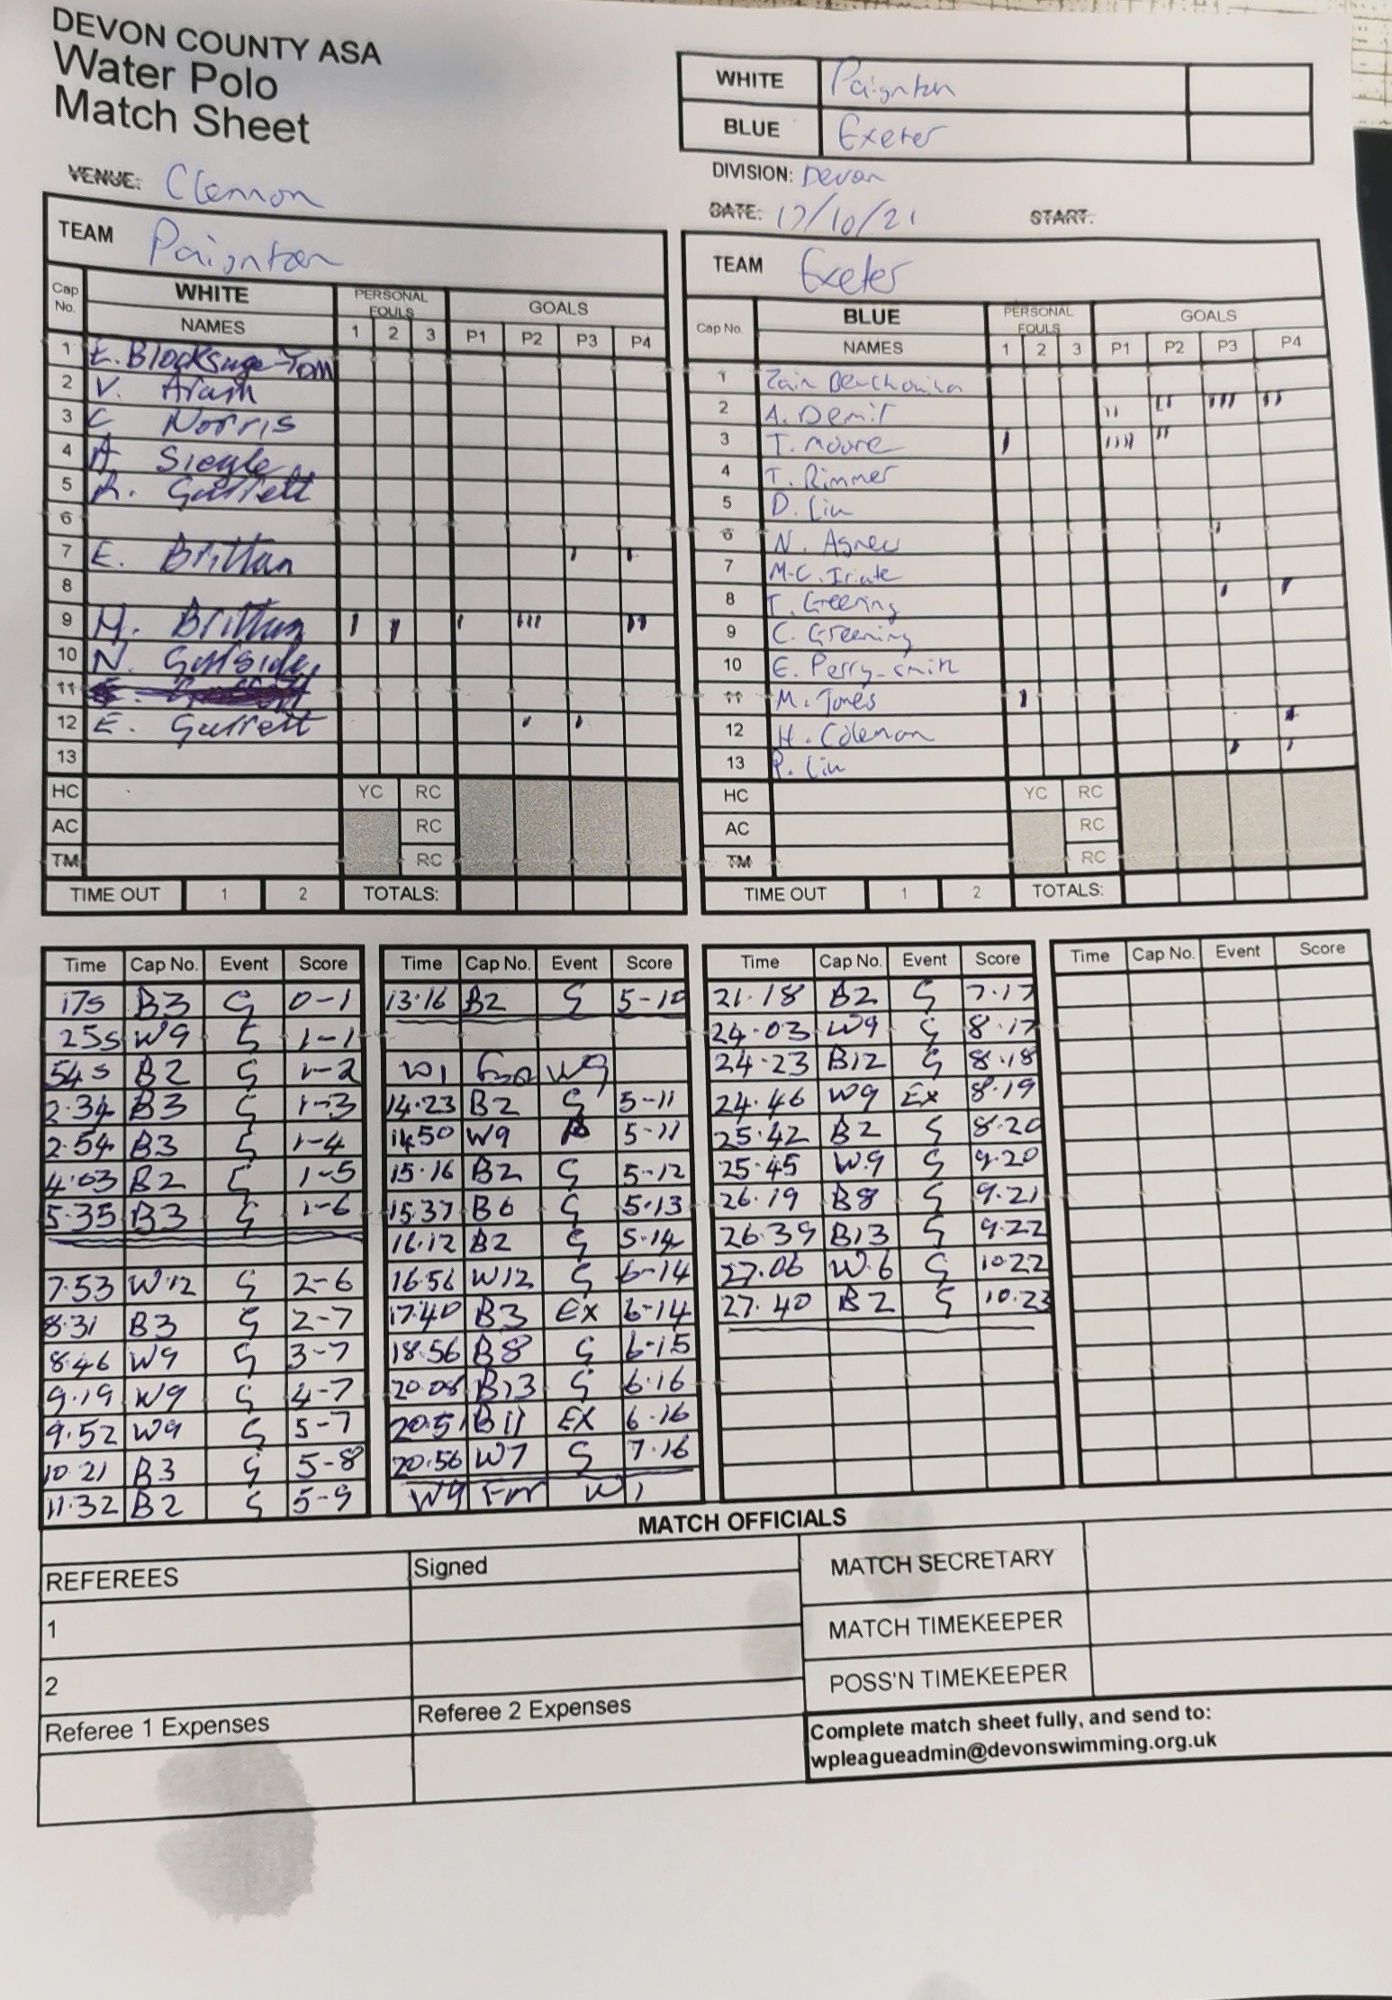 DEVON COUNTY ASA
Water Polo
Match Sheet
WHITE Paignton
BLUE Exeter
VENUE: Clennon
DIVISION: Devon
DATE: 17/10/21 START:
TEAM Paignton
TEAM Exeter
Cap No. WHITE PERSONAL FOULS GOALS
NAMES 1 2 3 P1 P2 P3 P4
1 E. Blocksuge-Tom
2 V. Aram
3 C Norris
4 A Sieyle
5 R. Garrett
6
7 E. Brittan ı ı
8
9 H. Brittan ı ı ı ııı ıı
10 N. Gattside
11
12 E. Garrett ı ı
13
HC YC RC
AC RC
TM RC
TIME OUT 1 2 TOTALS:
Cap No. BLUE PERSONAL FOULS GOALS
NAMES 1 2 3 P1 P2 P3 P4
1 Zain
2 A. Demir ıı ıı ııı ıı
3 T. Moore ı ıııı ıı
4 T. Rimmer
5 D. Liu
6 N. Agnew ı
7 M-C. Iriate
8 T. Greening ı ı
9 C. Greening
10 E. Perry-Smith
11 M. Jones ı
12 H. Coleman ı
13 P. Liu ı ı
HC YC RC
AC RC
TM RC
TIME OUT 1 2 TOTALS:
Time Cap No. Event Score
17s B3 G 0-1
25s W9 G 1-1
54s B2 G 1-2
2.34 B3 G 1-3
2.54 B3 G 1-4
4.03 B2 G 1-5
5.35 B3 G 1-6
7.53 W12 G 2-6
8.31 B3 G 2-7
8.46 W9 G 3-7
9.19 W9 G 4-7
9.52 W9 G 5-7
10 21 B3 G 5-8
11.32 B2 G 5-9
Time Cap No. Event Score
13.16 B2 G 5-10
W1 For W9
14.23 B2 G 5-11
14.50 W9 5-11
15.16 B2 G 5-12
15.37 B6 G 5.13
16.12 B2 G 5.14
16.56 W12 G 6-14
17.40 B3 EX 6-14
18.56 B8 G 6-15
20.08 B13 G 6.16
20.51 B11 EX 6.16
20.56 W7 G 7.16
W9 For W1
Time Cap No. Event Score
21.18 B2 G 7.17
24.03 W9 G 8.17
24.23 B12 G 8.18
24.46 W9 Ex 8.19
25.42 B2 G 8.20
25.45 W.9 G 9.20
26.19 B8 G 9.21
26.39 B13 G 9.22
27.06 W.6 G 10.22
27.40 B2 G 10.23
Time Cap No. Event Score
MATCH OFFICIALS
REFEREES Signed MATCH SECRETARY
1 MATCH TIMEKEEPER
2 POSS'N TIMEKEEPER
Referee 1 Expenses Referee 2 Expenses
Complete match sheet fully, and send to:
wpleagueadmin@devonswimming.org.uk